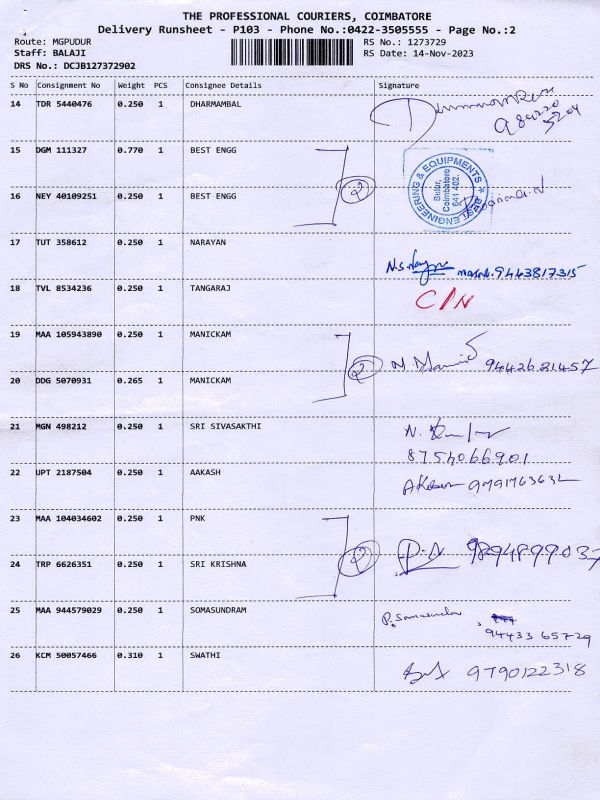 THE PROFESSIONAL COURIERS, COIMBATORE
Delivery Runsheet - P103 - Phone No.:0422-3505555 - Page No.:2
Route: MGPUDUR RS No.: 1273729
Staff: BALAJI RS Date: 14-Nov-2023
DRS No.: DCJB127372902
S No Consignment No Weight PCS Consignee Details Signature
14 TDR 5440476 0.250 1 DHARMAMBAL
15 DGM 111327 0.770 1 BEST ENGG
ENGINEERING & EQUIPMENTS * BEST
Sulur,
Coimbatore
641 402.
16 NEY 40109251 0.250 1 BEST ENGG 2
17 TUT 358612 0.250 1 NARAYAN
9443817315
18 TVL 8534236 0.250 1 TANGARAJ C/N
19 MAA 105943890 0.250 1 MANICKAM 2
20 DDG 5070931 0.265 1 MANICKAM
21 MGN 498212 0.250 1 SRI SIVASAKTHI
8754066901
22 UPT 2187504 0.250 1 AAKASH
23 MAA 104034602 0.250 1 PNK
24 TRP 6626351 0.250 1 SRI KRISHNA 2 9894899037
25 MAA 944579029 0.250 1 SOMASUNDRAM P. Somasundar
94433 65729
26 KCM 50057466 0.310 1 SWATHI 9790122318